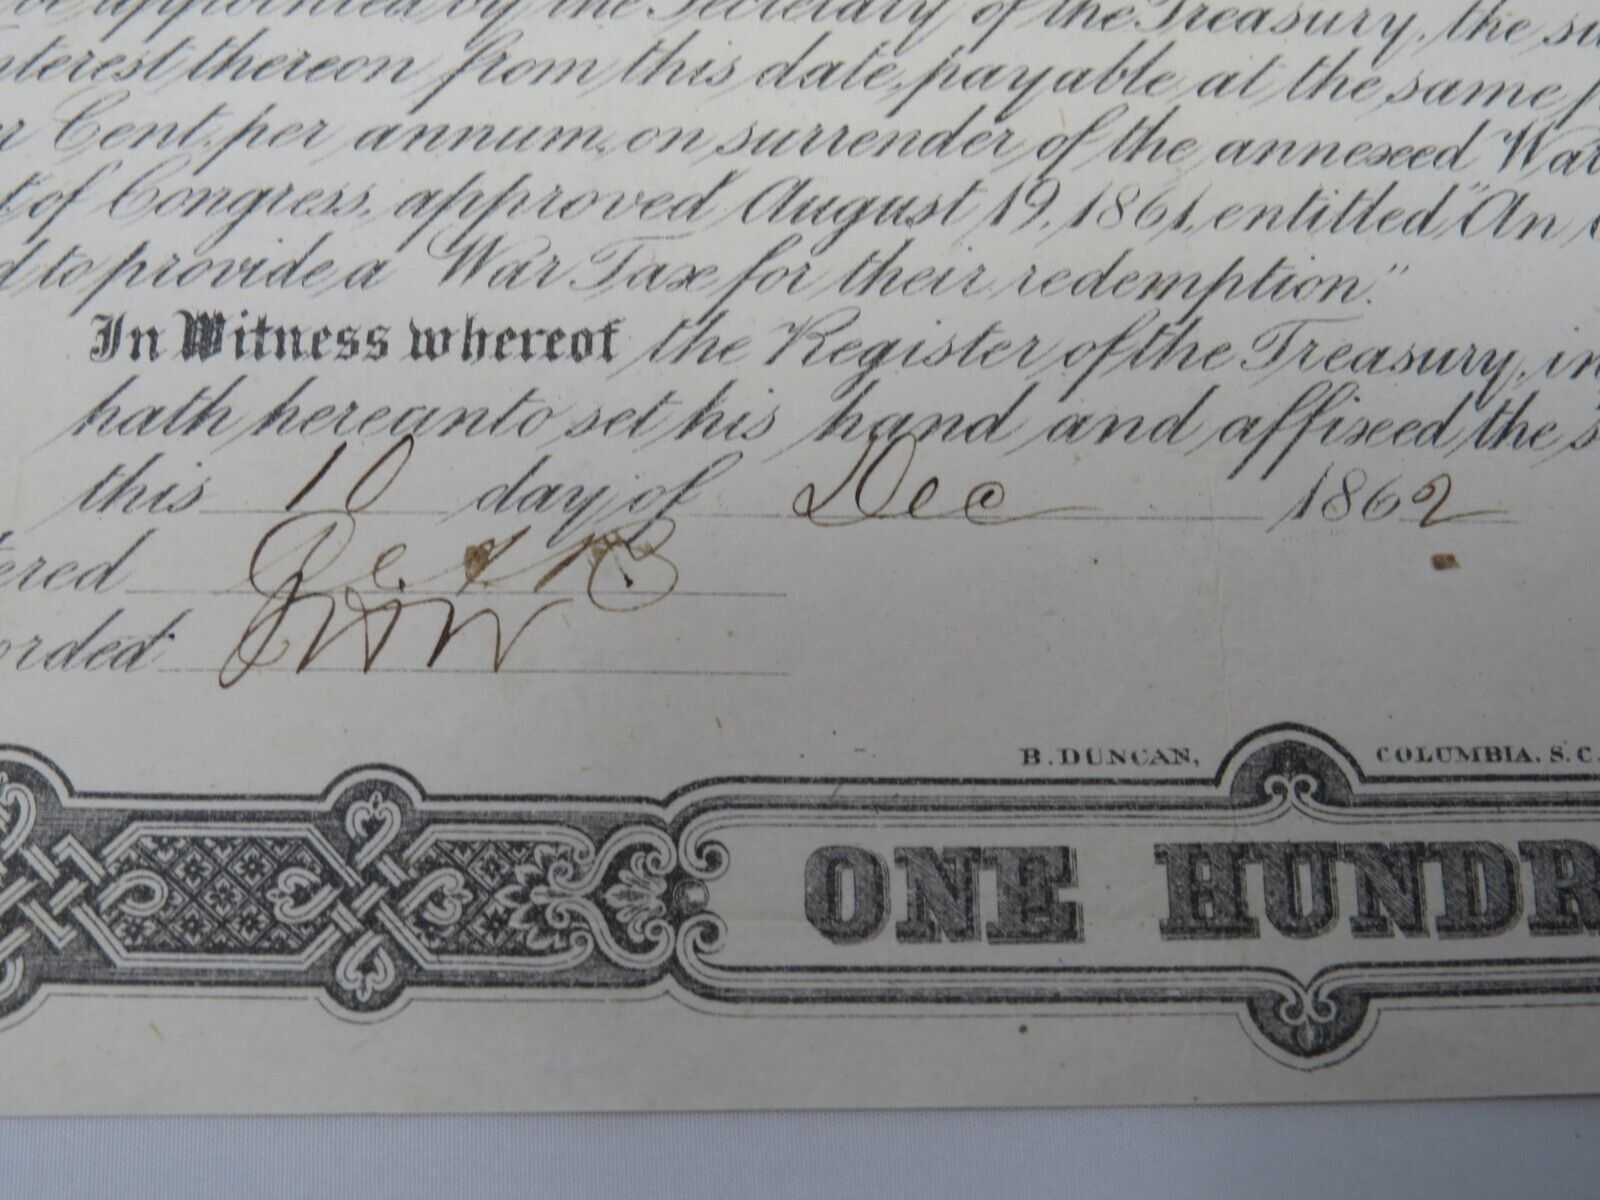 be appointed by the Secretary of the Treasury, the su
nterest thereon from this date, payable at the same p
r Cent. per annum, on surrender of the annexed War
t of Congress, approved August 19, 1861, entitled "An
d to provide a War Tax for their redemption."
In Witness whereof the Register of the Treasury, in
hath hereunto set his hand and affixed the s
this 10 day of Dec 1862
ered
orded
B. DUNCAN, COLUMBIA, S.C.
ONE HUNDR